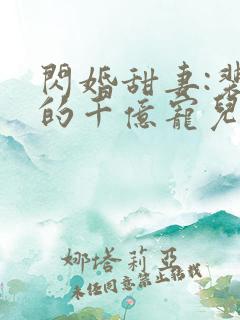 閃婚甜妻:裴
的千億寵兒
娜塔莉亞
未經同意禁止轉載